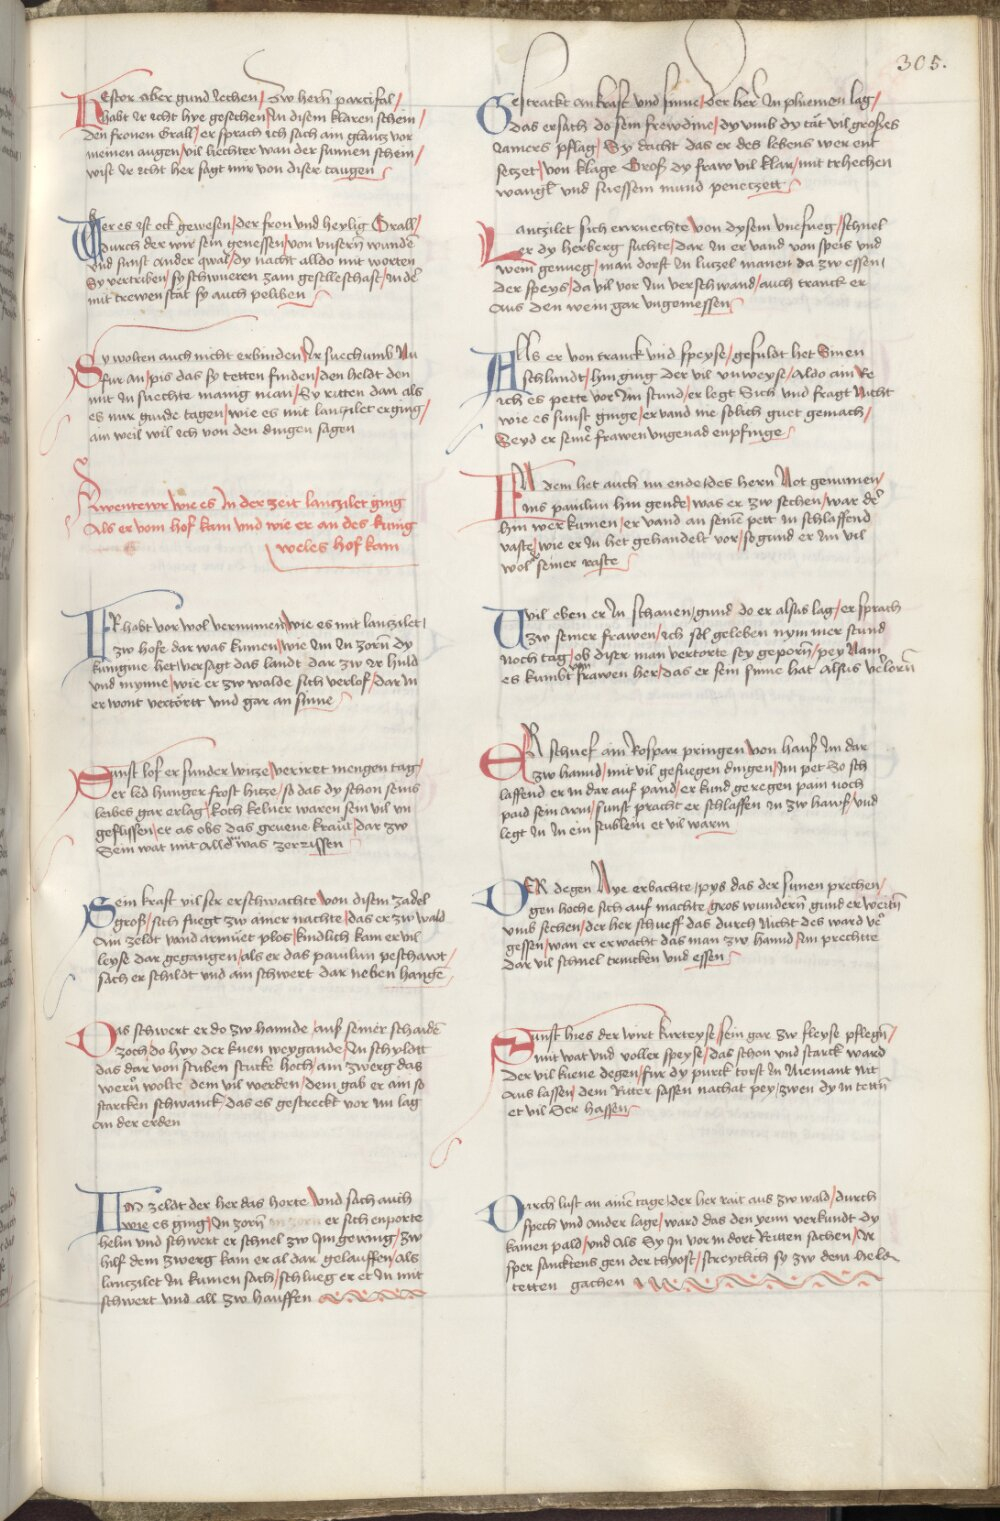 305.
Hestor aber gund iechen / Zw hern partzifal /
habt Ir icht hye gesechen / In disem klaren schein /
den fronen Grall / er sprach ich sach am glantz vor
meinen augen / vil liechter wan der sunnen schein /
wist Ir icht her sagt mir von diser taugen
Der es ist ock gewesen / der fron und heylig Grall /
durch der wir sein genessen / von unsern wunde
und sunst ander qwal / dy nacht alldo mit worten
Sy vertriben / sy schwueren zam geselleschaft / in der
mit trewen stat sy auch peliben
Sy wolten auch nicht erbinden / Ir suechumb Nu
fur an / pis das sy tetten finden / den heldt den
mit In suechte manig man / Sy ritten dan als
es mir gunde tagen / wie es mit lantzilet erging /
am weil wil ich von den dingen sagen
Awentewr wie es In der zeit lantzilet ging
Als er vom hof kam und wie er an des kunig
weles hof kam
Ir habt vor wol vernumen / wie es mit lantzilet /
zw hofe dar was kumen / wie Im In zorn dy
kunigine het / versagt das landt dar zw Ir huld
und mynne / wie er zw walde sich verlof / dar In
er wont vertörtt und gar an sinne
Sunst lof er sunder witze / veriret mengen tag /
er led hunger frost hitze / so das dy schon seins
leibes gar erlag / koch kelner waren sein vil un
geflissen / er as obs das gruene kraut / dar zw
Sein wat mit alle was zerrissen
Sein kraft vil ser erschwachte / von disem zadel
groß / sich fuegt zw ainer nachte / das er zw wald
Ain zeldt vand armuet plos / kindlich kam er vil
leyse dar gegangen / als er das paulun peschawt /
sach er schildt und ain schwert dar neben hange
Das schwert er do zw hannde / aus seiner schaide
zoch / do hyy der kuen weygande / In schyldtt
das dar von stuben stucke hoch / ain zwerg das
wern wolte dem vil werden / dem gab er ain so
starcken schwanck / das es gestreckt vor im lag
an der erden
Im zeldt der her das horte / und sach auch
wie es ging / In zorn er sich enporte
helm und schwert er schnel zw Im gewing / zw
hilf dem zwerg kam er al dar gelauffen / als
lantzilet In kumen sach / schlueg er et In mit
schwert und all zw hauffen
Gestrackt an kraft und sinne / der her In pluemen lag /
das ersach do sein frewdine / dy umb dy tät vil großes
Iamers pflag / Sy dacht das er des lebens wer ent
setzet / von klage Groß dy fraw vil klar / mit trehechen
wangl und suessem mund penetzett
Lantzilet sich errnechte von dysem unefueg / schnel
er dy herberg suchte / dar In er vand von speis und
wein genueg / man dorft In lutzel manen da zw essen /
der speys / da vil vor Im verschwand / auch tranck er
Aus den wein gar ungemessen
Als er von tranck und speyse / gefuldt het Sinen
schlundt / hin ging der vil unweyse / Aldo ain re
ich es pette vor Im stund / er legt Sich und fragt Nicht
wie es sunst ginge / er vand nie solich guet gemach /
Seyd er seine frawen ungenad enpfinge
In dem het auch im ende / des hern Not genumen /
ins paulun hin gende / was er zw sechen / war der
hin wer kumen / er vand an seine pett In schlaffend
vaste / wie er In het gehandelt vor / so gund er Im vil
wol seiner raste
Vil eben er In schauen / gund do er alsus lag / er sprach
zw seiner frawen / ich sol geleben nymmer stund
noch tag / ob diser man vertorte sey geporn / pey Nam
es kumbt von frawen her / das er sein sinne hat alsus verlorn
Er schuef ain Rospar pringen von hauß Im dar
zw hannd / mit vil gefuegen dingen / Im pet So sch
laffend er in dar auf pand / er kund geregen pain noch
paid sein arm / sunst pracht er schlaffen In zw haus / und
legt In In ein stublein et vil warm
Der degen Nye erbachte / pys das der sunen prechen /
gen hoche sich auf machte / gros wundern gund er weitn
umb sechen / der her schueff das durch Nicht des ward ver
gessen / wan er erwacht das man zw hannd Im prechte
dar vil schnel trincken und essen
Sunst hies der wirt kurteyse / sein gar zw fleyse pflegn /
mit wat und voller speyse / das schon und starck ward
der vil kuene degen / fur dy purck torst In Niemant nit
Aus lassen / dem Ritter sassen nachat pey / zwen dy In tettn
et vil Ser hassen
Durch lust an aine tage / der her rait aus zw wald / durch
spech und ander lage / ward das den yenn verkundt dy
kamen pald / und Als Sy In vor in dort Ritten sachen / Ir
sper sancktens gen der thyost / streytlich sy zw dem held
tetten gachen